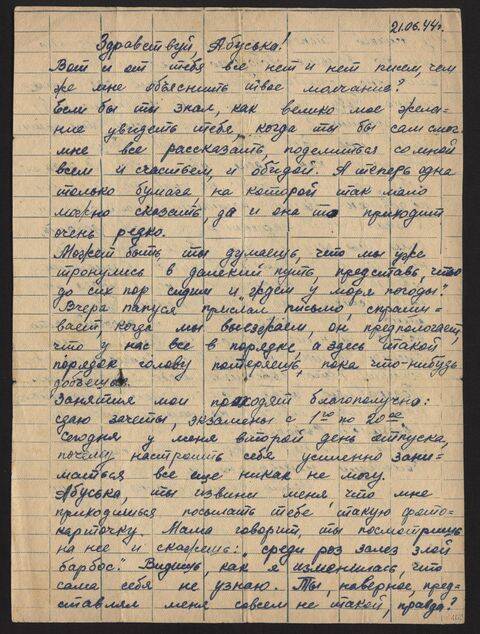 21.06.44г.
Здравствуй, Абуська!
Вот и от тебя все нет и нет писем, чем
же мне объяснить твое молчание?
Если бы ты знал, как велико мое жела-
ние увидеть тебя, когда ты бы сам смог
мне все рассказать, поделиться со мной
всем и счастьем, и обидой. А теперь одна
только бумага, на которой так мало
можно сказать, да и она то приходит
очень редко.
Может быть, ты думаешь, что мы уже
тронулись в далекий путь, представь, что
до сих пор сидим и "ждем у моря погоды".
Вчера папуся прислал письмо, спраши-
вает, когда мы выезжаем, он предполагает,
что у нас все в порядке, а здесь такой
порядок голову потеряешь, пока что-нибудь
добьешься.
Занятия мои проходят благополучно:
сдаю зачеты, экзамены с 1го по 20ое.
Сегодня у меня второй день отпуска,
почему настроить себя усиленно зани-
маться все еще никак не могу.
Абуська, ты извини меня, что мне
приходиться посылать тебе такую фото-
карточку. Мама говорит, ты посмотришь
на нее и скажешь: "среди роз залез злой
барбос". Видишь, как я изменилась, что
сама себя не узнаю. Ты, наверное, пред-
ставлял меня совсем не такой, правда?